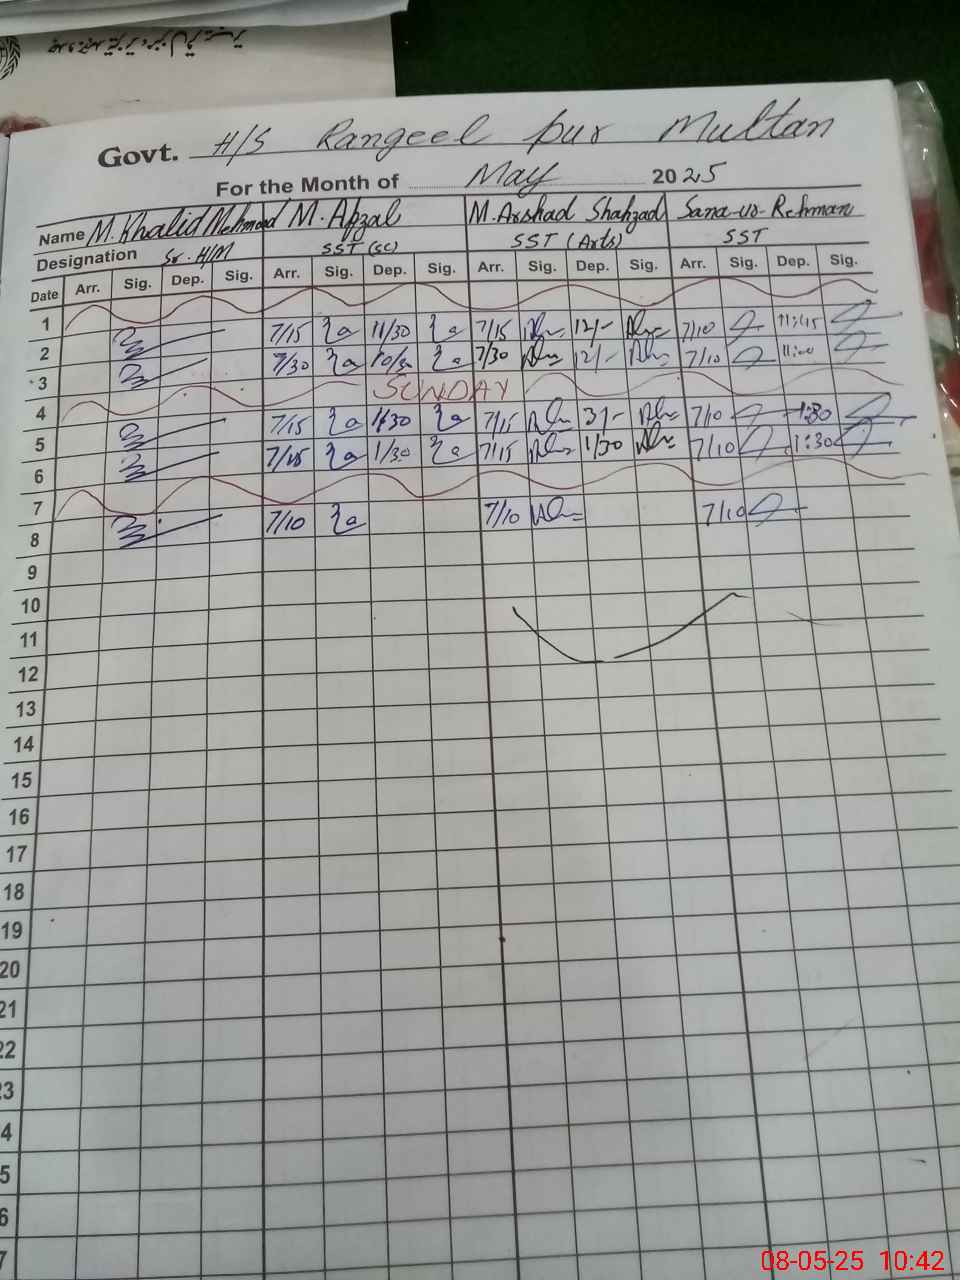 Govt. H/S Rangeel pur Multan
For the Month of May 2025
Name M. Khalid Mehmood M. Afzal M. Arshad Shahzad Sana-ur-Rehman
Designation Sr. H/M SST (SC) SST (Arts) SST
Date Arr. Sig. Dep. Sig. Arr. Sig. Dep. Sig. Arr. Sig. Dep. Sig. Arr. Sig. Dep. Sig.
1
2 7/15 11/30 7/15 12/- 7/10 11:15
3 7/30 7/30 12/- 7/10 11:00
SUNDAY
4
5 7/15 1/30 7/15 3/- 7/10 1:30
6 7/15 1/30 7/15 1/30 7/10 1:30
7
8 7/10 7/10 7/10
9
10
11
12
13
14
15
16
17
18
19
20
21
22
23
4
5
6
7
08-05-25 10:42